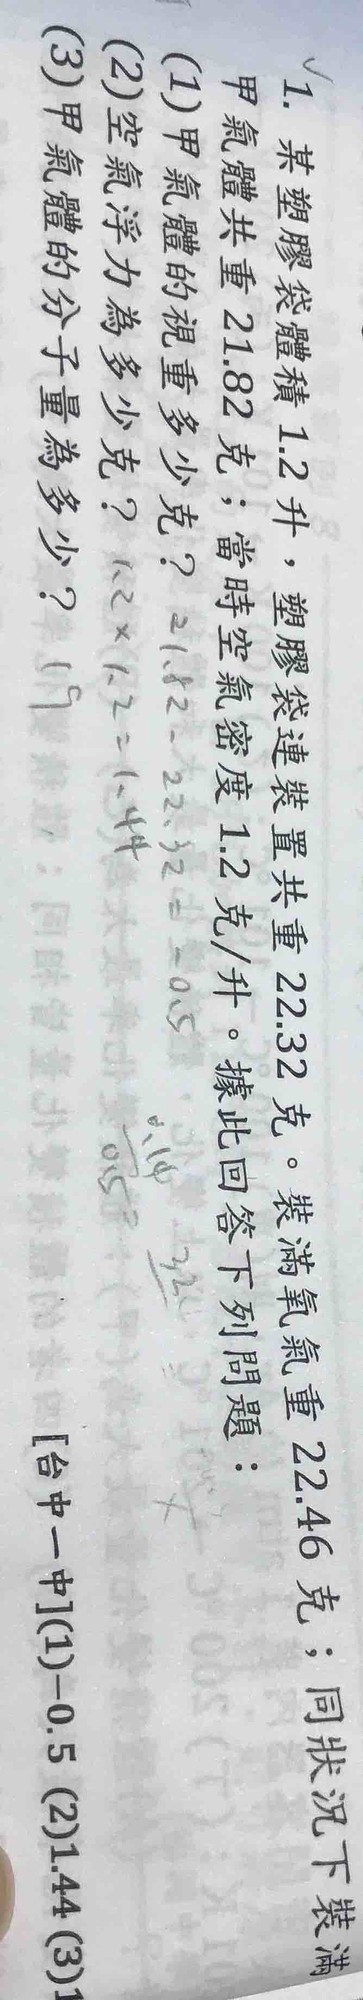 ✓1. 某塑膠袋體積 1.2 升，塑膠袋連裝置共重 22.32 克。裝滿氧氣重 22.46 克；同狀況下裝滿
甲氣體共重 21.82 克；當時空氣密度 1.2 克/升。據此回答下列問題：
(1)甲氣體的視重多少克？ 21.82-22.32=-0.5
(2)空氣浮力為多少克？ 1.2×1.2=1.44
(3)甲氣體的分子量為多少？
[台中一中](1)-0.5 (2)1.44 (3)1